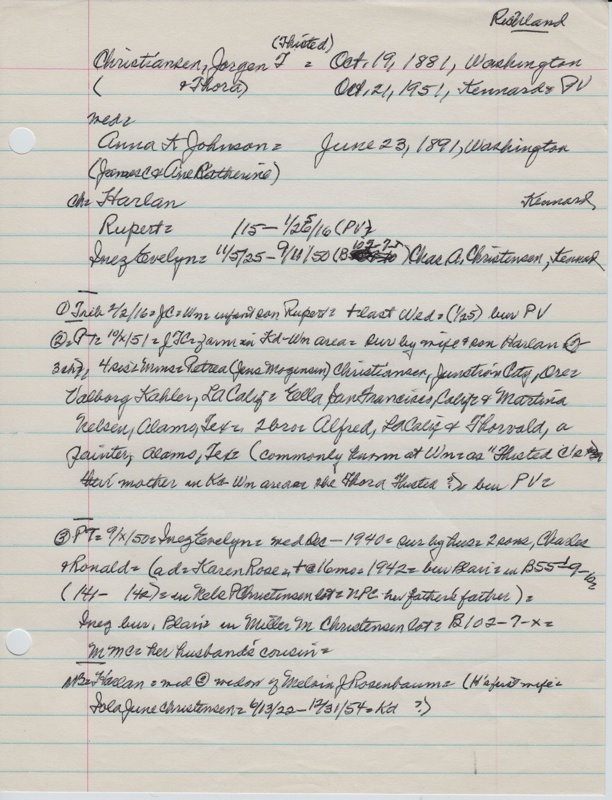 Richland
(Thisted)
Christiansen, Jorgen T = Oct. 19, 1881, Washington
( & Thora) Oct. 21, 1951, Kennard & PV
med=
Anna K Johnson = June 23, 1891, Washington
(James C & Ane Katherine)
ch= Harlan Kennard,
Rupert= /15 – 1/25/16 (PV)
Inez Evelyn = 11/5/25 – 9/11/50 (B 102-7-) Chas A. Christensen, Kennard
① Trib 2/2/16 = JC = Wm = infant son Rupert = + last Wed = (1/25) bur PV
② PT = 10/x/51 = JTC = farm in Kd-Wm area = sur by wife & son Harlan &
3 4 sis = Mrms = Petrea (Jens Mogensen) Christiansen, Junction City, Ore =
Valborg Kahler, LA Calif = Ella San Francisco, Calif & Martina
Nelsen, Alamo, Tex =, 2 bro = Alfred, La Calif & Thorvald, a
painter, Alamo, Tex = (commonly known at Wm = as "Thisted
their mother in Kd-Wm area = the Thora Thisted ?) bur PV =
③ PT = 9/x/50 = Inez Evelyn = med Dec – 1940 = sur by hus = 2 sons, Charles
& Ronald = (a d = Karen Rose = + @ 16 mos = 1942 = bur Blair = in B55-9-
(/41 – /42) = in Nels P Christensen lot = NPC her father's father) =
Inez bur. Blair in Miller M Christensen lot = B102-7-x =
MMC = her husband's cousin =
NB = Harlan = med @ widow of Melvin J Rosenbaum = (H's first wife =
Iola June Christensen = 6/13/22 – 12/31/54 = Kd ?)